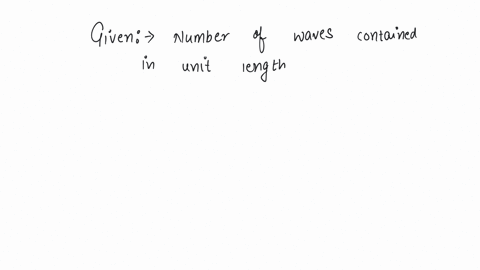 Given:→ Number of waves contained
in unit length